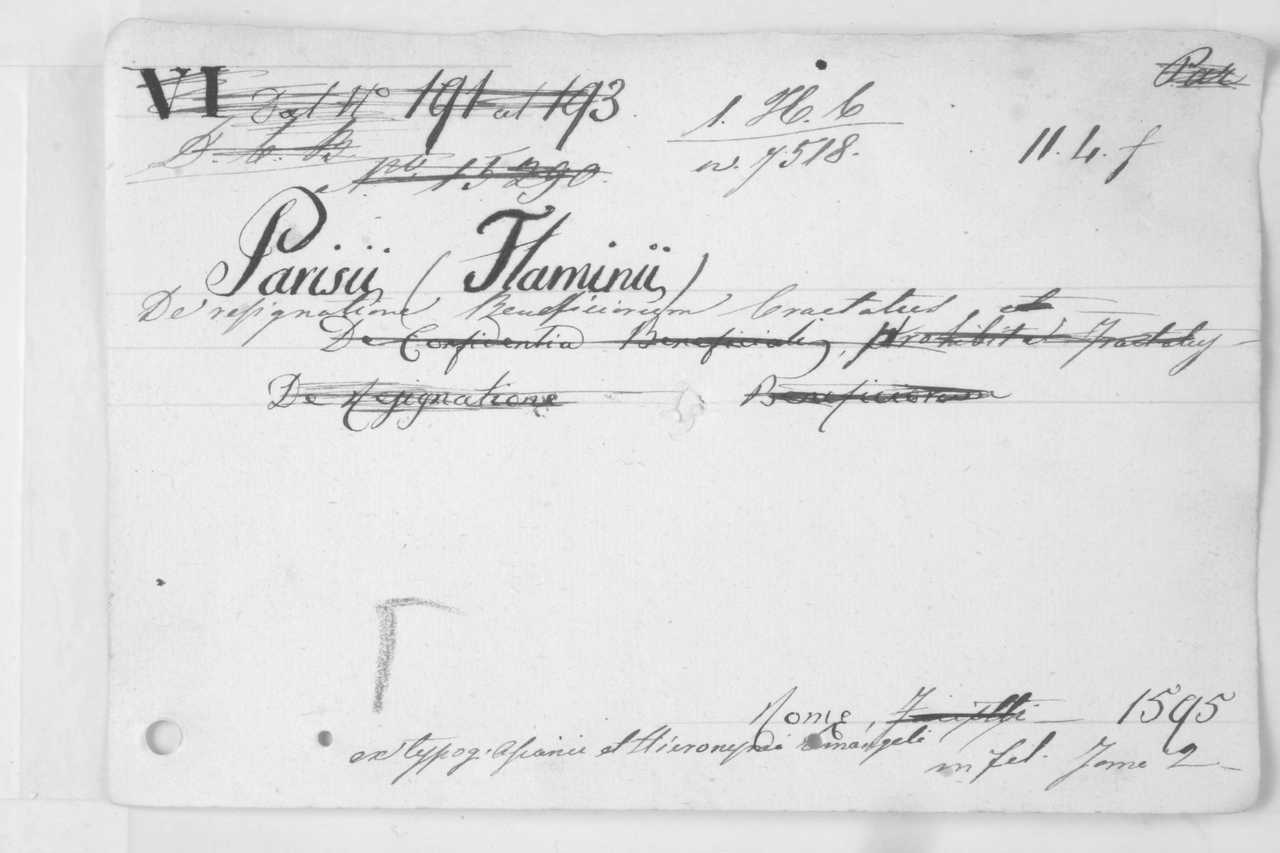 VI Dal N.º 191 al 193.
Par
1. H. 6
D. b. B.
n. 7518.
11. 4. f
N.º 15290.
Parisii (Flaminii)
De resignatione Beneficiorum tractatus, et
De Confidentia Beneficiali, prohibita Tractatus
De Resignatione Beneficiorum
Rome, 1595
ex typog: Ascanii et Hieronymi Donangeli
in fol. Tome 2